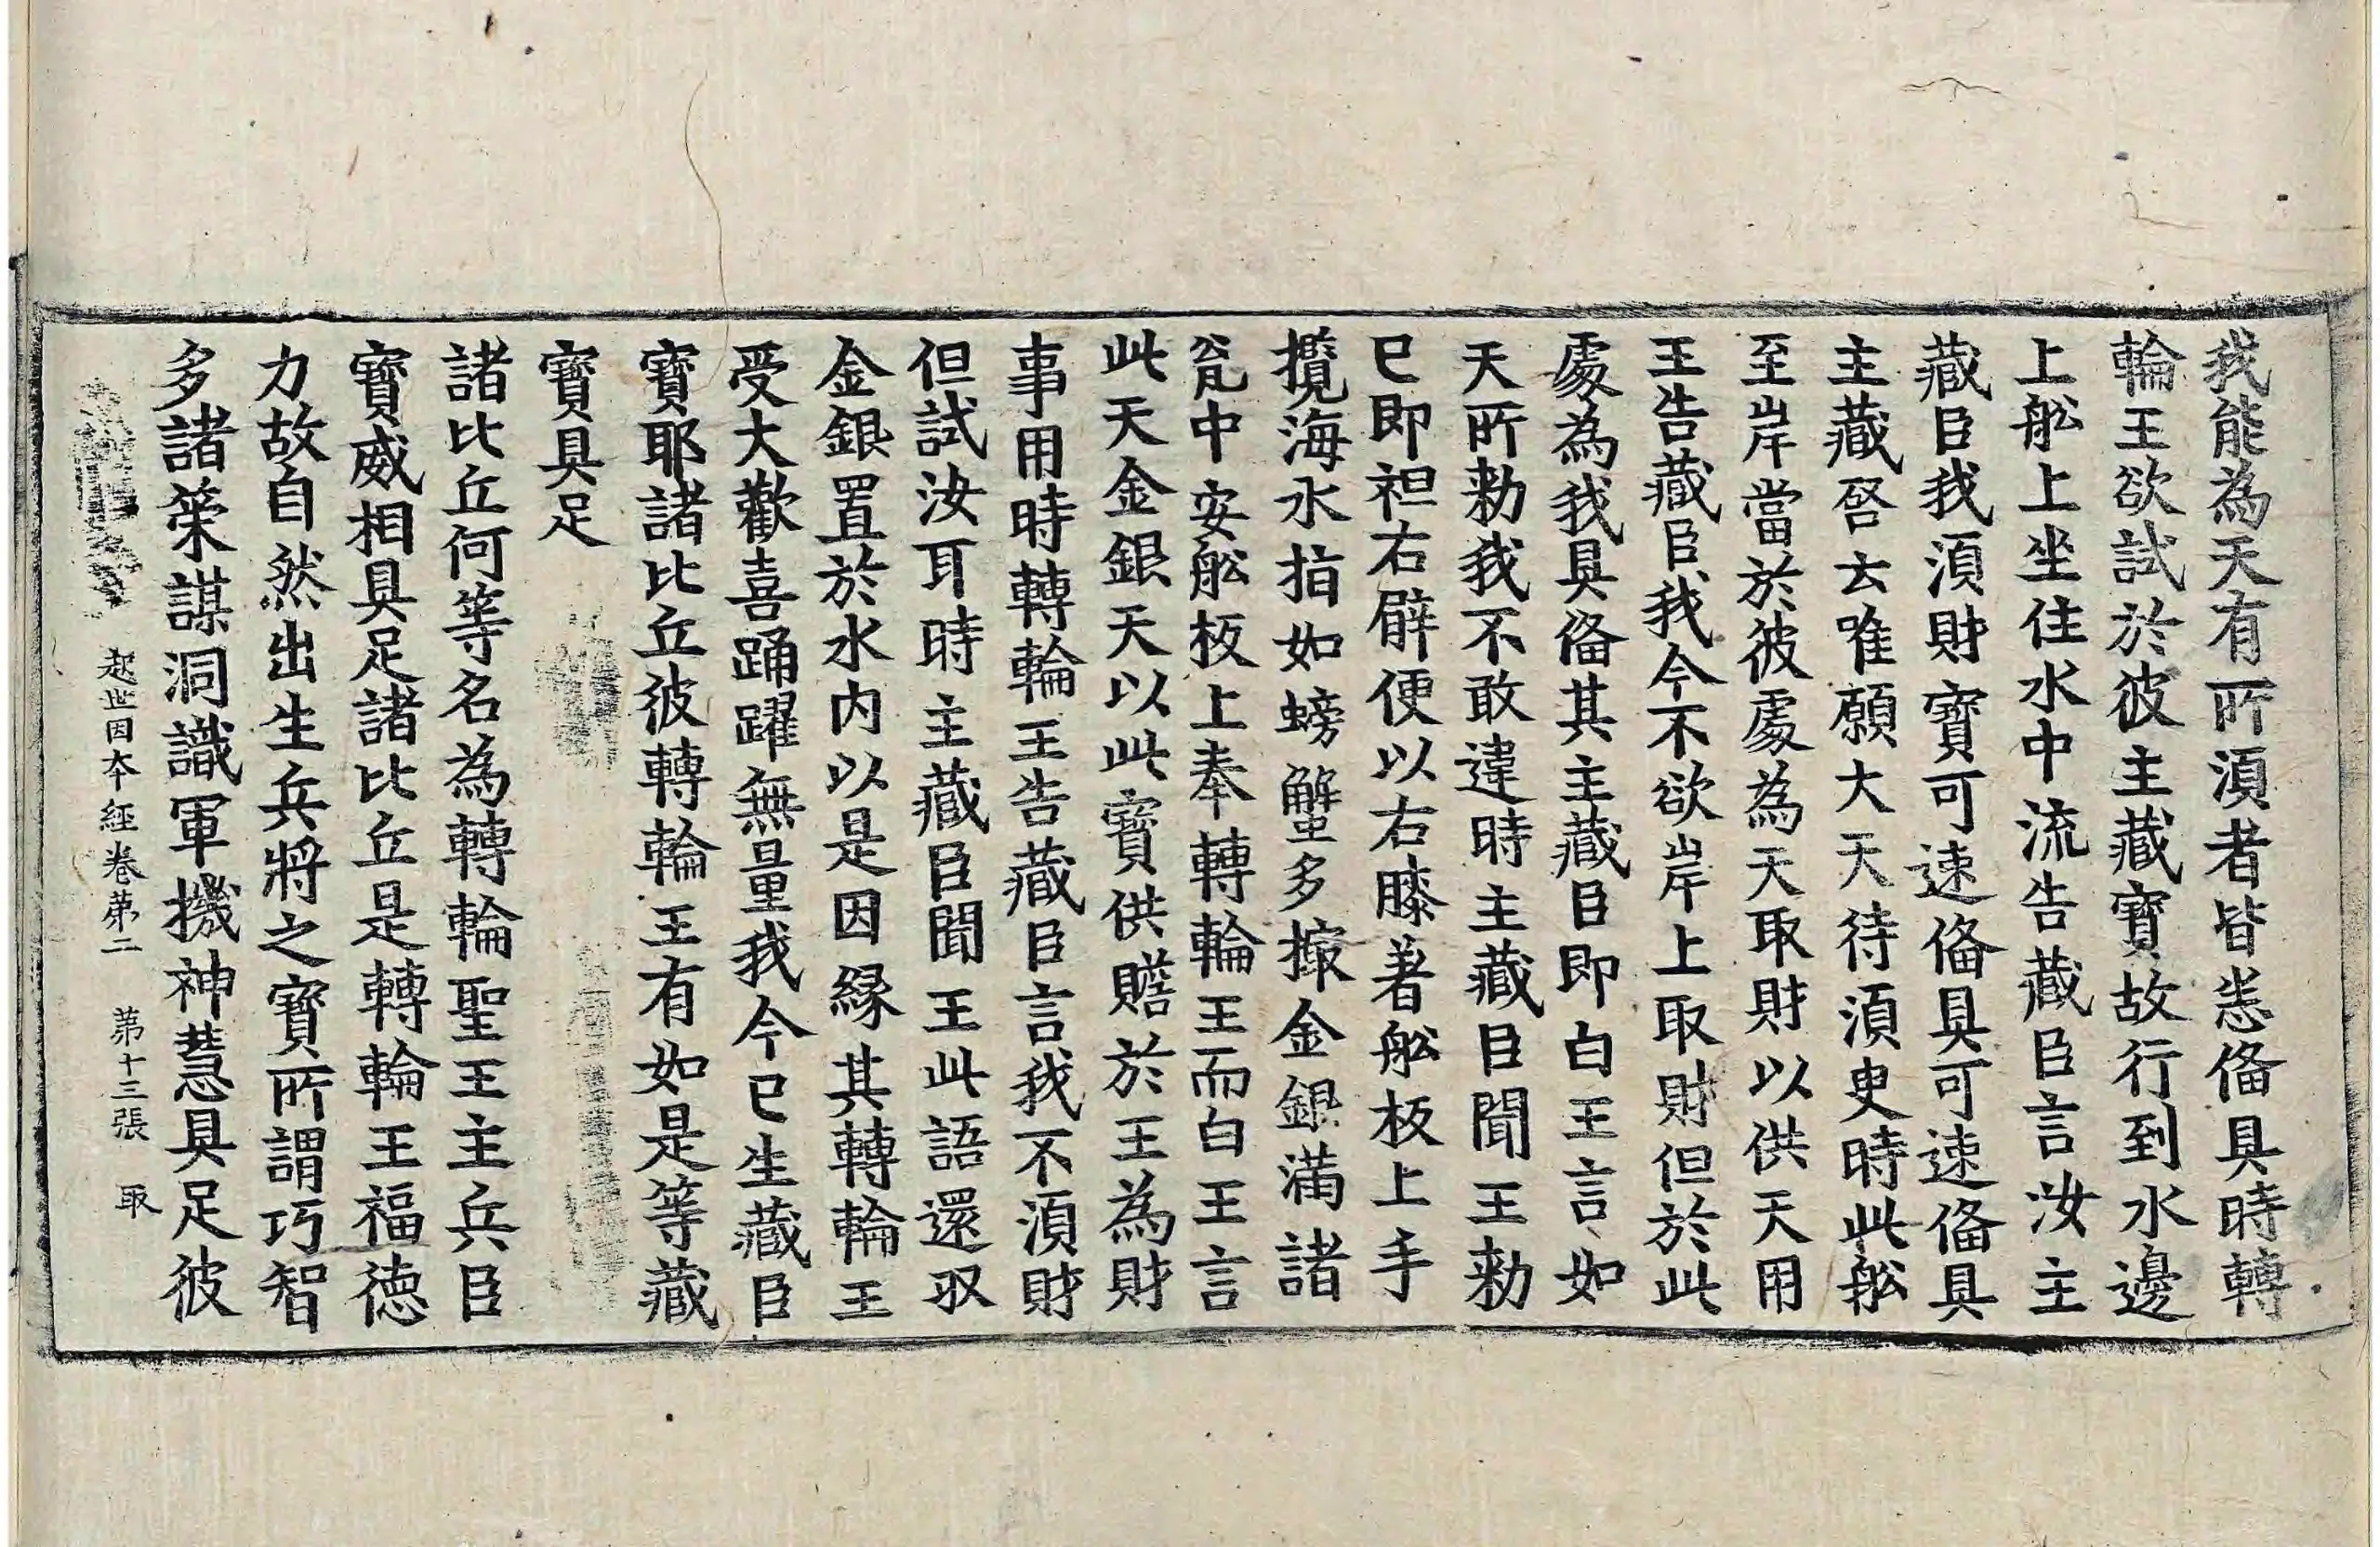 我能為天有所湏者皆悉俻具時轉
輪王欲試於彼主藏寶故行到水邊
上舩上坐住水中流告藏臣言汝主
藏臣我湏財寶可速俻具可速俻具
主藏啓去唯願大天待湏臾時此舩
至岸當於彼處為天取財以供天用
王告藏臣我今不欲岸上取財但於此
處為我具俻其主藏臣即白王言如
天所勑我不敢違時主藏臣聞王勑
已即袒右臂便以右膝著舩板上手
攪海水指如螃蟹多撮金銀滿諸
瓮中安舩板上奉轉輪王而白王言
此天金銀天以此寶供贍於王為財
事用時轉輪王告藏臣言我不湏財
但試汝耳時主藏臣聞王此語還収
金銀置於水内以是因緣其轉輪王
受大歡喜踊躍無量我今已生藏臣
寶耶諸比丘彼轉輪王有如是等藏
寶具足
諸比丘何等名為轉輪聖王主兵臣
寶威相具足諸比丘是轉輪王福德
力故自然出生兵將之寶所謂巧智
多諸策謀洞識軍機神慧具足彼
起世因本經卷第二 第十三張 取